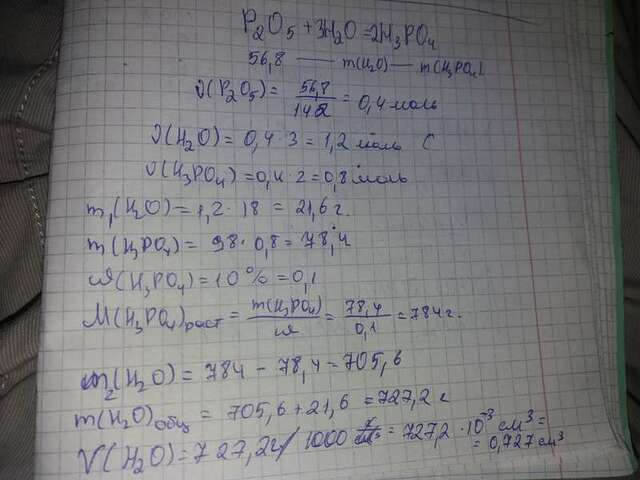 P₂O₅ + 3H₂O = 2H₃PO₄
56,8 — m(H₂O) — m(H₃PO₄)
ν(P₂O₅) = 56,8/142 = 0,4 моль
ν(H₂O) = 0,4 · 3 = 1,2 моль
ν(H₃PO₄) = 0,4 · 2 = 0,8 моль
m₁(H₂O) = 1,2 · 18 = 21,6 г.
m(H₃PO₄) = 98 · 0,8 = 78,4
ω(H₃PO₄) = 10% = 0,1
M(H₃PO₄)раст = m(H₃PO₄)/ω = 78,4/0,1 = 784 г.
m₂(H₂O) = 784 − 78,4 = 705,6
m(H₂O)общ = 705,6 + 21,6 = 727,2 г
V(H₂O) = 727,2г/1000 = 727,2 · 10⁻³ см³ =
= 0,727 см³